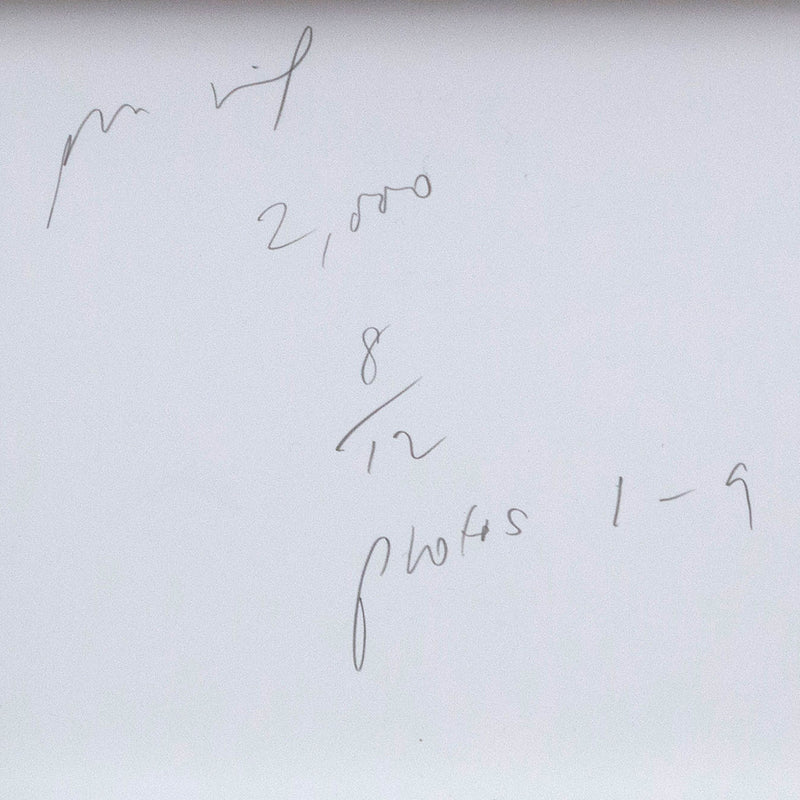 2,000
8/12
photos 1 - 9